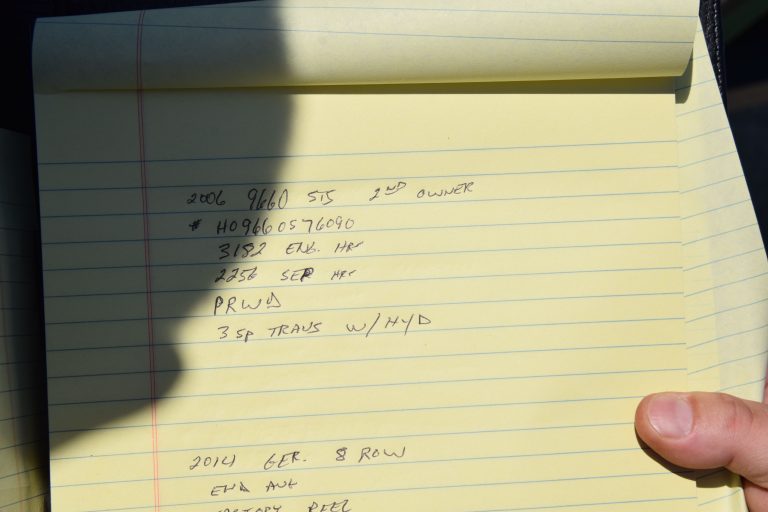 2006 9660 STS 2ND OWNER
# H09660S716090
3182 ENG. HRS
2256 SEP HRS
PRWD
3 SP TRANS W/ HYD
2014 GER. 8 ROW
END AUG
REEL